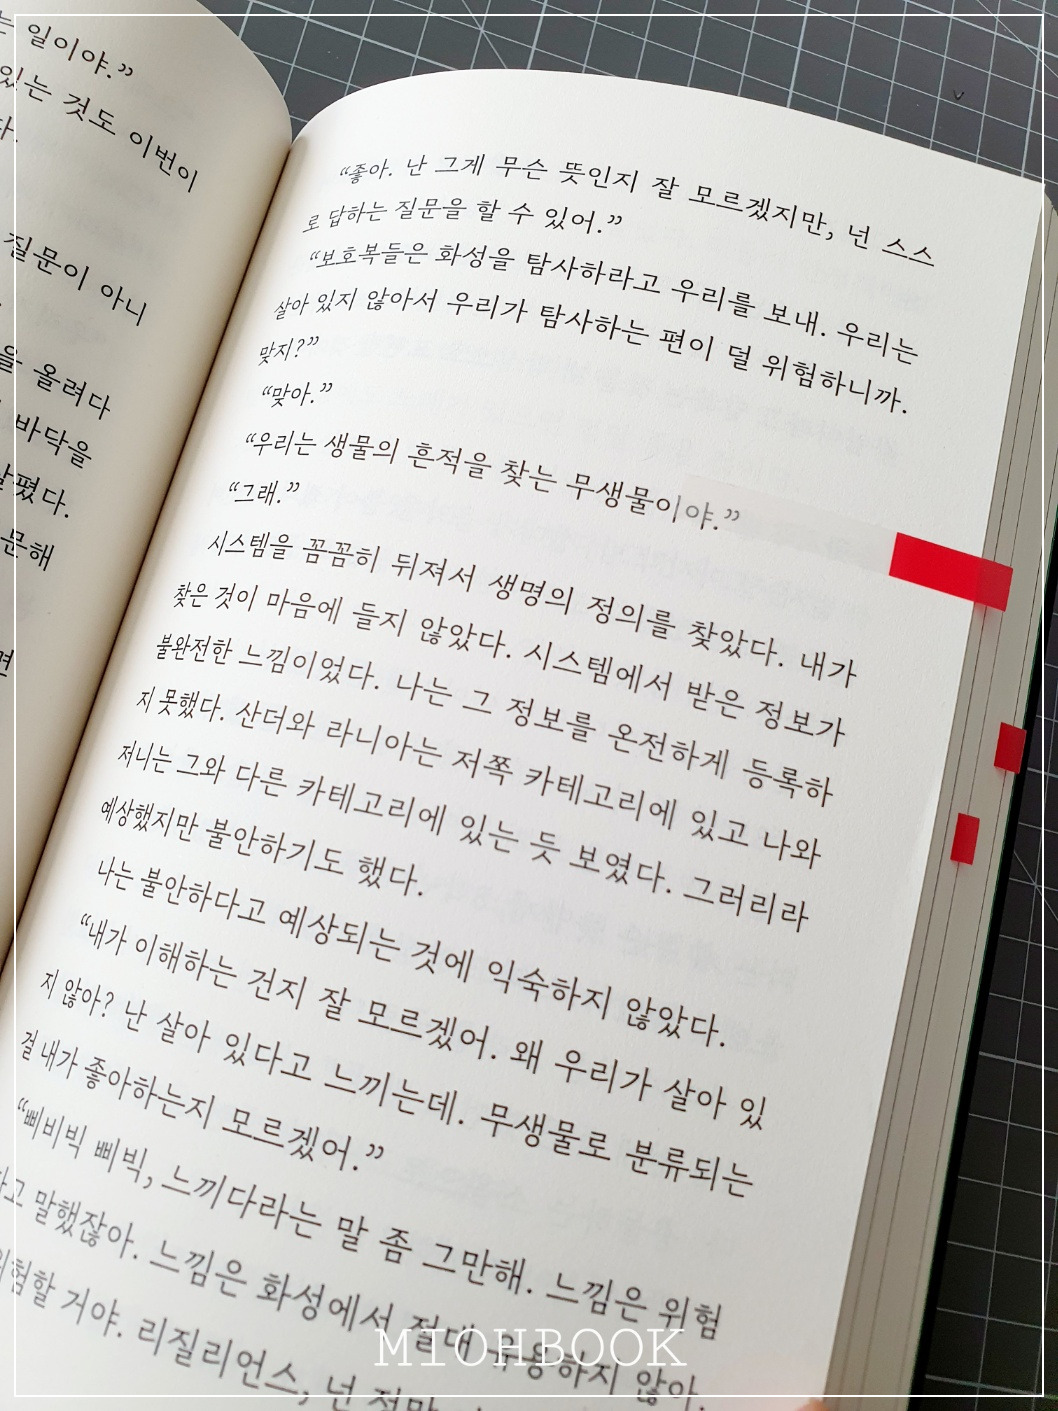 는 일이야.”
있는 것도 이번이
다.
질문이 아니
을 올려다
바닥을
살폈다.
문해
면
“좋아. 난 그게 무슨 뜻인지 잘 모르겠지만, 넌 스스
로 답하는 질문을 할 수 있어.”
“보호복들은 화성을 탐사하라고 우리를 보내. 우리는
살아 있지 않아서 우리가 탐사하는 편이 덜 위험하니까.
맞지?”
“맞아.”
“우리는 생물의 흔적을 찾는 무생물이야.”
“그래.”
시스템을 꼼꼼히 뒤져서 생명의 정의를 찾았다. 내가
찾은 것이 마음에 들지 않았다. 시스템에서 받은 정보가
불완전한 느낌이었다. 나는 그 정보를 온전하게 등록하
지 못했다. 산더와 라니아는 저쪽 카테고리에 있고 나와
저니는 그와 다른 카테고리에 있는 듯 보였다. 그러리라
예상했지만 불안하기도 했다.
나는 불안하다고 예상되는 것에 익숙하지 않았다.
“내가 이해하는 건지 잘 모르겠어. 왜 우리가 살아 있
지 않아? 난 살아 있다고 느끼는데. 무생물로 분류되는
걸 내가 좋아하는지 모르겠어.”
“삐비빅 삐빅, 느끼다라는 말 좀 그만해. 느낌은 위험
하다고 말했잖아. 느낌은 화성에서 절대 유용하지 않아.
위험할 거야. 리질리언스, 넌 정말
MIOHBOOK